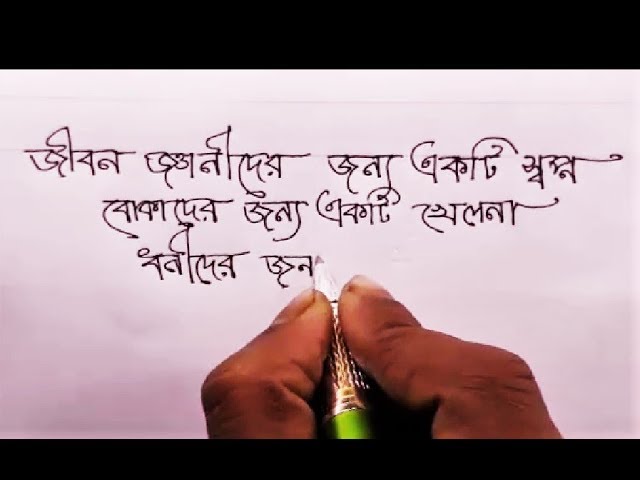 জীবন জ্ঞানীদের জন্য একটি স্বপ্ন
বোকাদের জন্য একটি খেলনা
ধনীদের জন